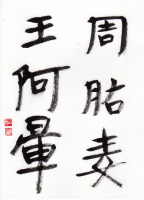 周麦
王阿暈